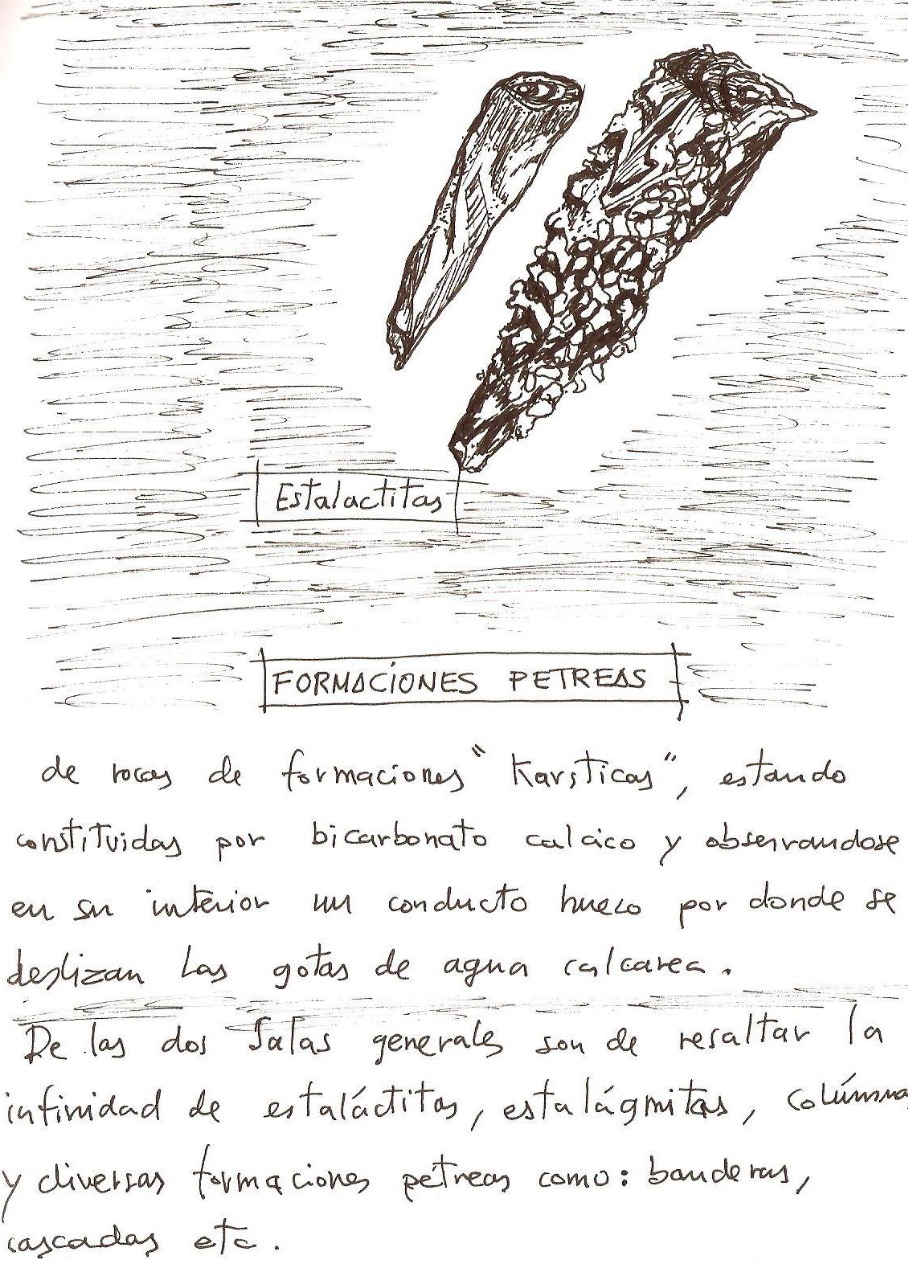 Estalactitas
FORMACIONES PETREAS
de rocas de formaciones "Karsticas", estando
constituidas por bicarbonato calcico y observandose
en su interior un conducto hueco por donde se
deslizan las gotas de agua calcarea.
De las dos Salas generales son de resaltar la
infinidad de estaláctitas, estalágmitas, colúmna
y diversas formaciones petreas como: banderas,
cascadas etc.